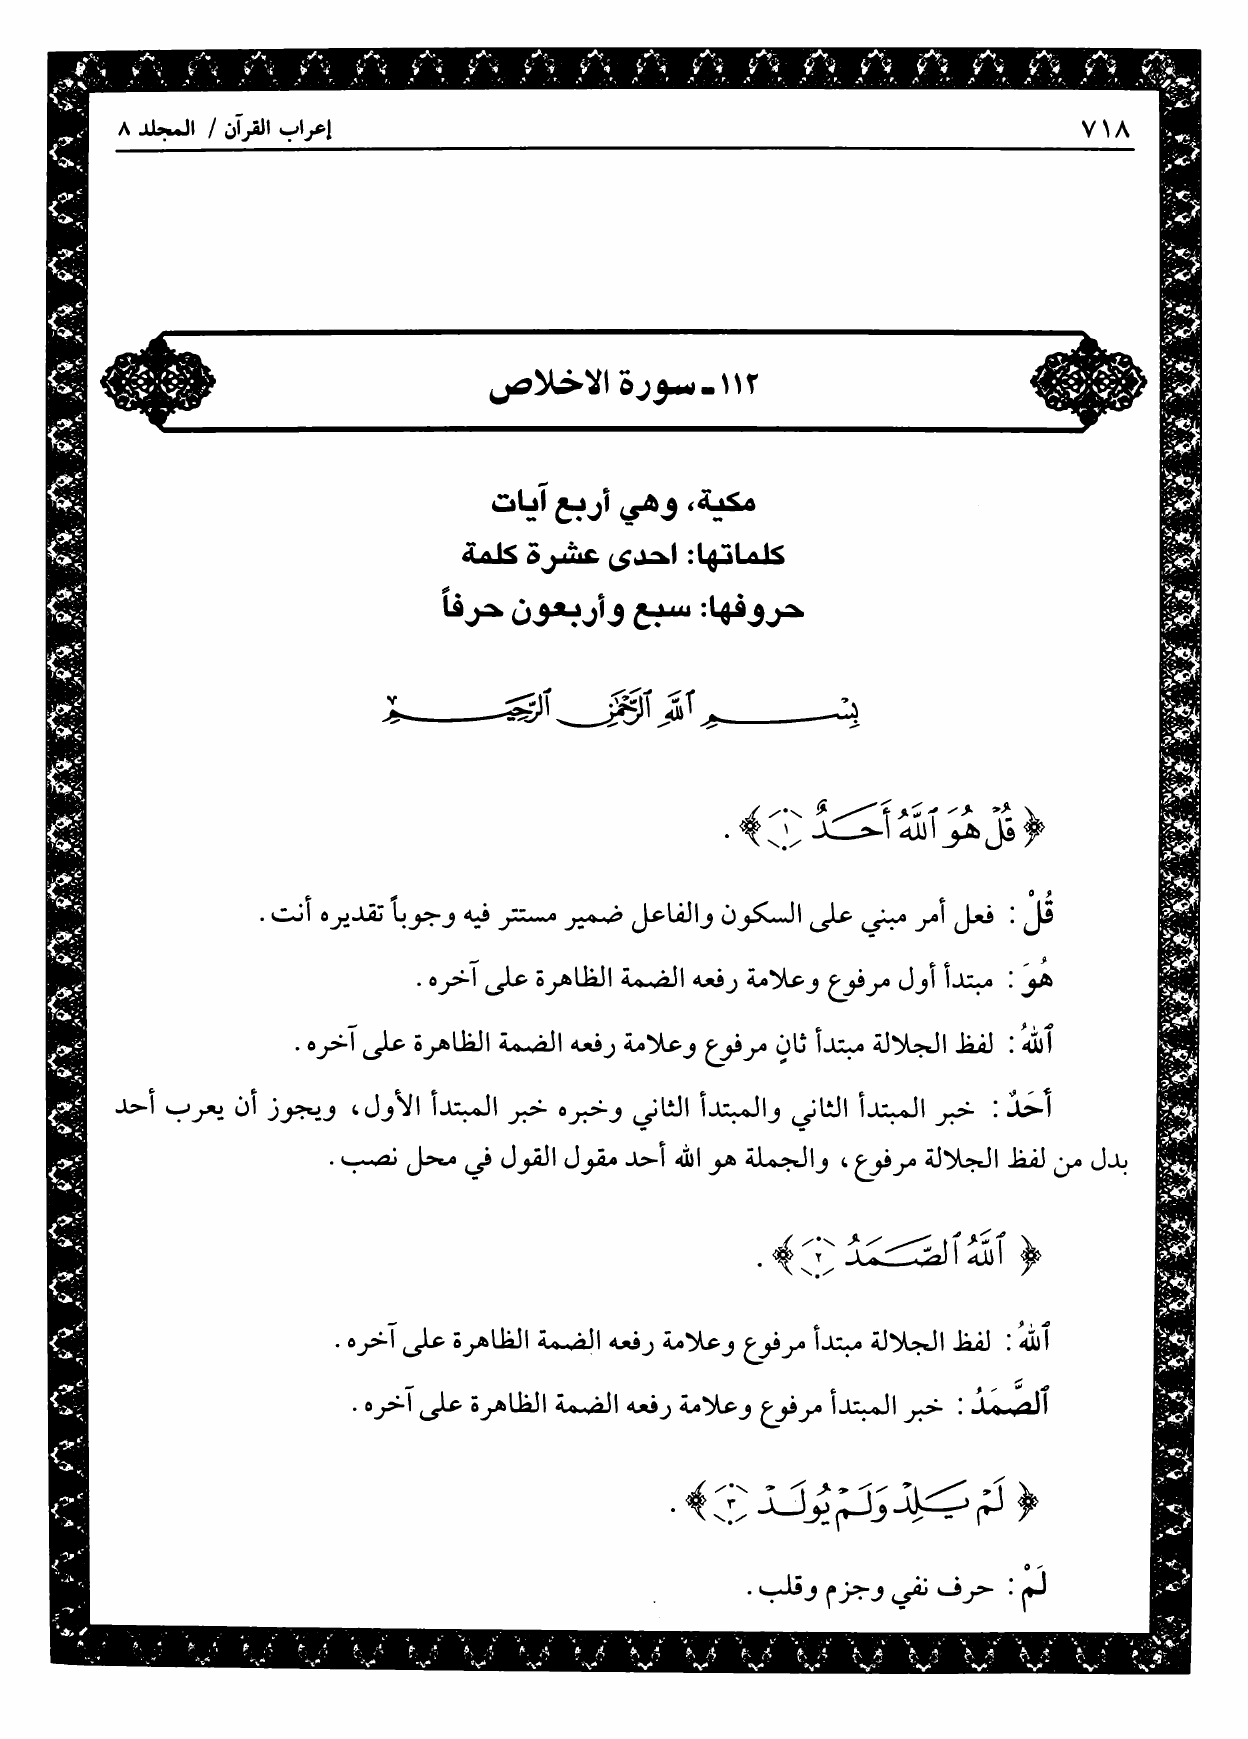 ٧١٨
إعراب القرآن / المجلد ٨
١١٢ - سورة الاخلاص
مكية، وهي أربع آيات
كلماتها: احدى عشرة كلمة
حروفها: سبع وأربعون حرفاً
بِسْمِ ٱللَّهِ ٱلرَّحْمَٰنِ ٱلرَّحِيمِ
﴿ قُلْ هُوَ ٱللَّهُ أَحَدٌ ١ ﴾ .
قُلْ : فعل أمر مبني على السكون والفاعل ضمير مستتر فيه وجوباً تقديره أنت .
هُوَ : مبتدأ أول مرفوع وعلامة رفعه الضمة الظاهرة على آخره .
ٱللهُ : لفظ الجلالة مبتدأ ثانٍ مرفوع وعلامة رفعه الضمة الظاهرة على آخره .
أَحَدٌ : خبر المبتدأ الثاني والمبتدأ الثاني وخبره خبر المبتدأ الأول، ويجوز أن يعرب أحد
بدل من لفظ الجلالة مرفوع، والجملة هو الله أحد مقول القول في محل نصب .
﴿ ٱللَّهُ ٱلصَّمَدُ ٢ ﴾ .
ٱللهُ : لفظ الجلالة مبتدأ مرفوع وعلامة رفعه الضمة الظاهرة على آخره .
ٱلصَّمَدُ : خبر المبتدأ مرفوع وعلامة رفعه الضمة الظاهرة على آخره .
﴿ لَمْ يَلِدْ وَلَمْ يُولَدْ ٣ ﴾ .
لَمْ : حرف نفي وجزم وقلب .